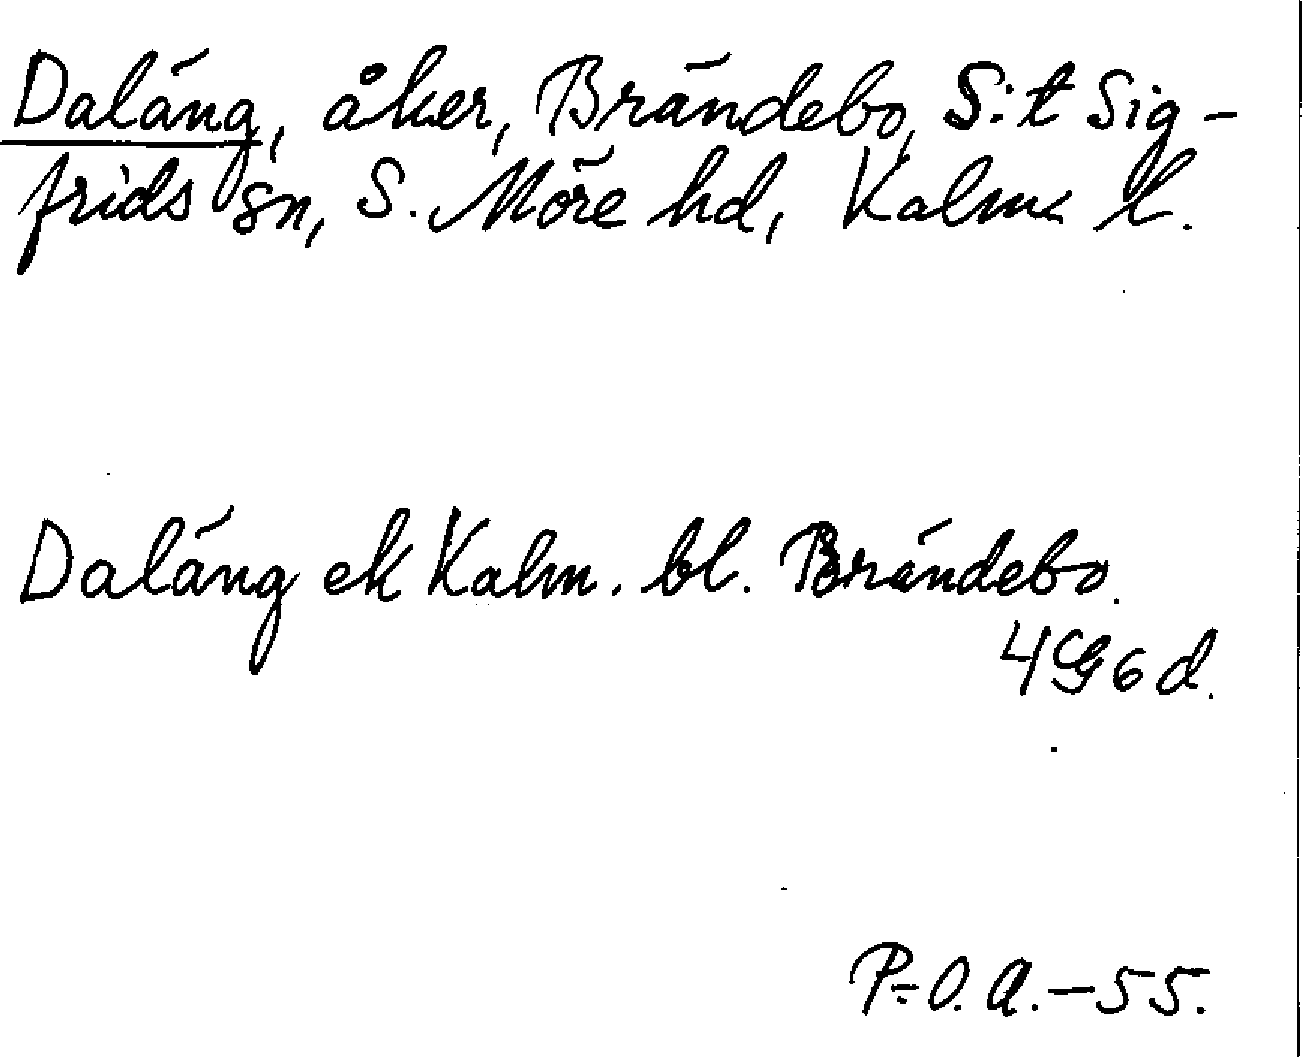 Daläng, åker, Brändebo, S:t Sig-
frids sn, S. Möre hd, Kalm. l.
Daläng ek Kalm. bl. Brändebo.
4 G 6 d.
P-O. A. - 55.